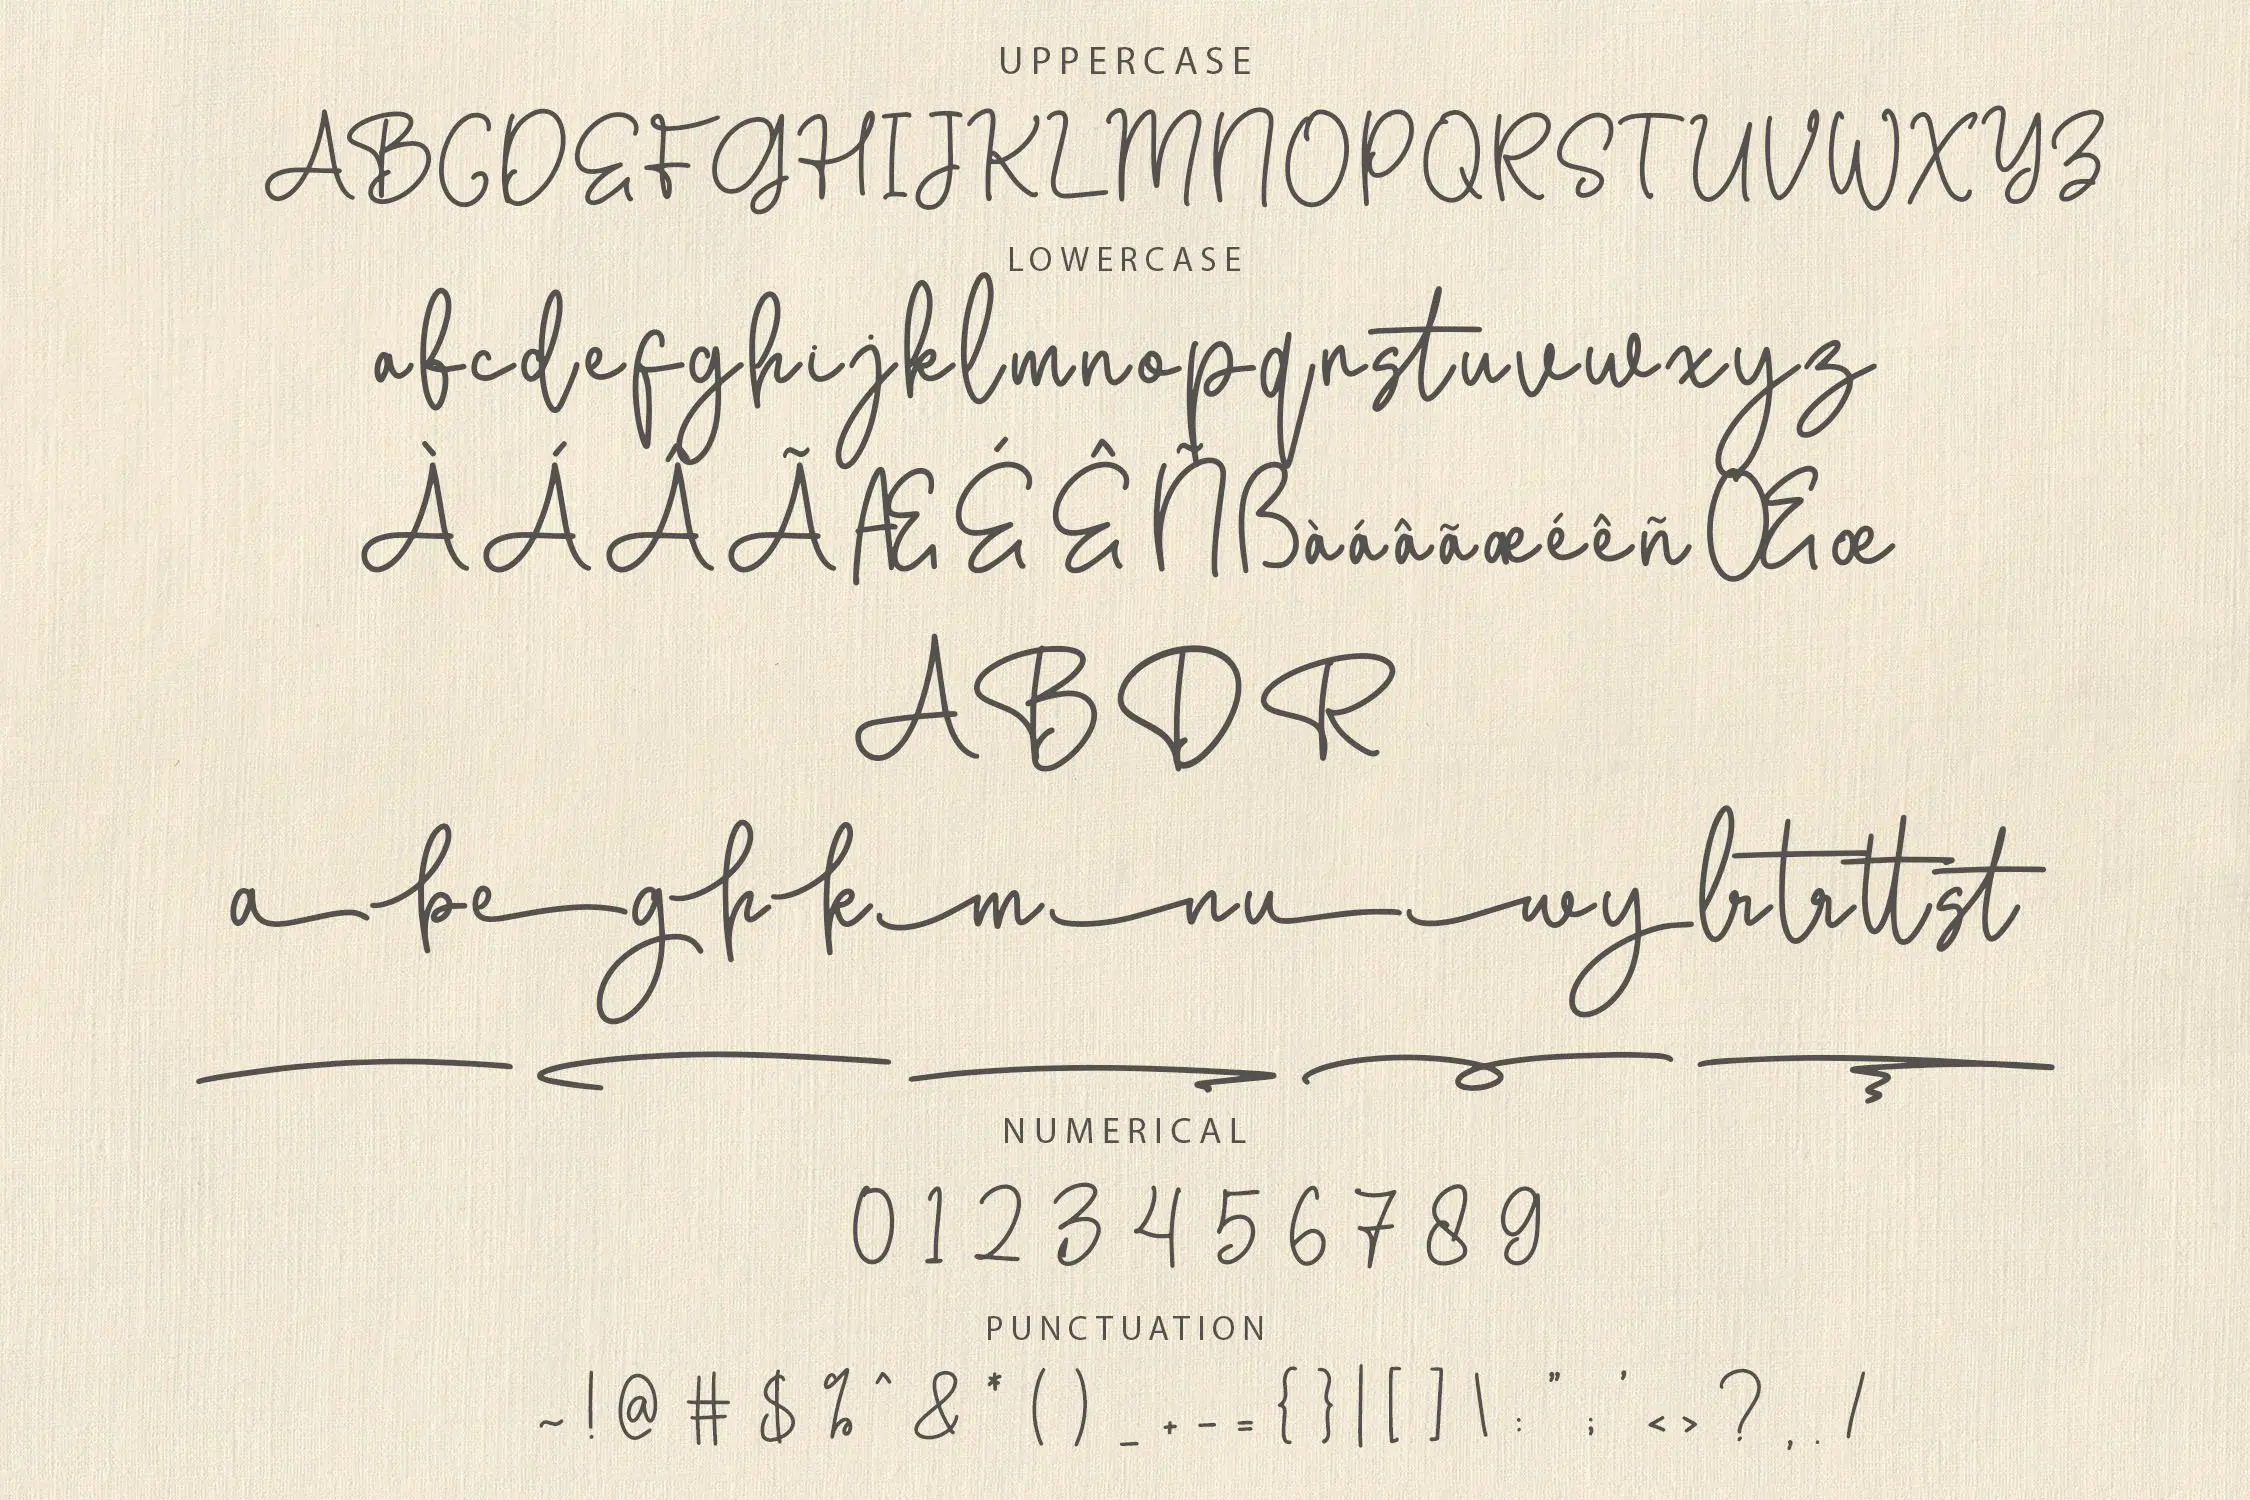 UPPERCASE
ABCDEFGHIJKLMNOPQRSTUVWXYZ
LOWERCASE
abcdefghijklmnopqrstuvwxyz
ÀÁÂÃÆÉÊÑßàáâãæéêñŒœ
ABDR
a be g h k m n u w y lr tr tt st
NUMERICAL
0 1 2 3 4 5 6 7 8 9
PUNCTUATION
~ ! @ # $ % ^ & * ( ) _ + - = { } | [ ] \ : " ; ' < > ? , . /